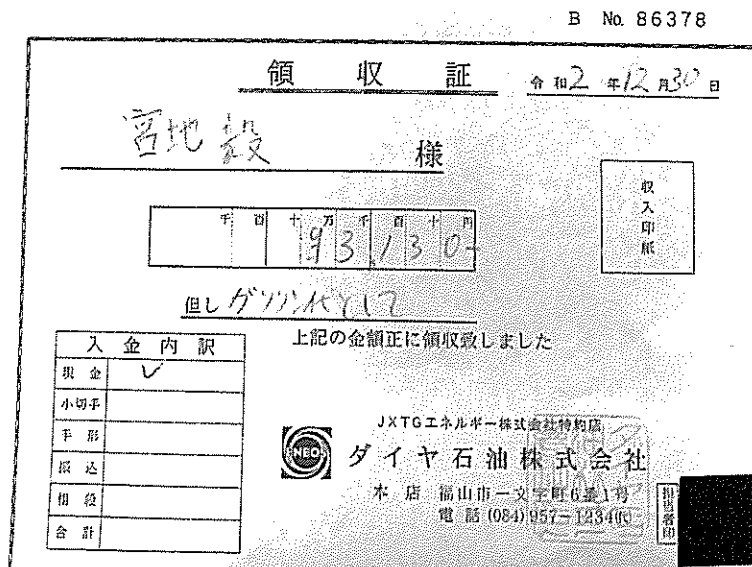 B No. 86378
領収証
令和2年12月30日
宮地 毅 様
収入印紙
千百十万千百十円
93,130-
但しガソリン代として
上記の金額正に領収致しました
入金内訳
現金 ✓
小切手
手形
振込
相殺
合計
JXTGエネルギー株式会社特約店
NEO
ダイヤ石油株式会社
本店 福山市一文字町6番1号
電話(084)957-1234(代)
担当者印